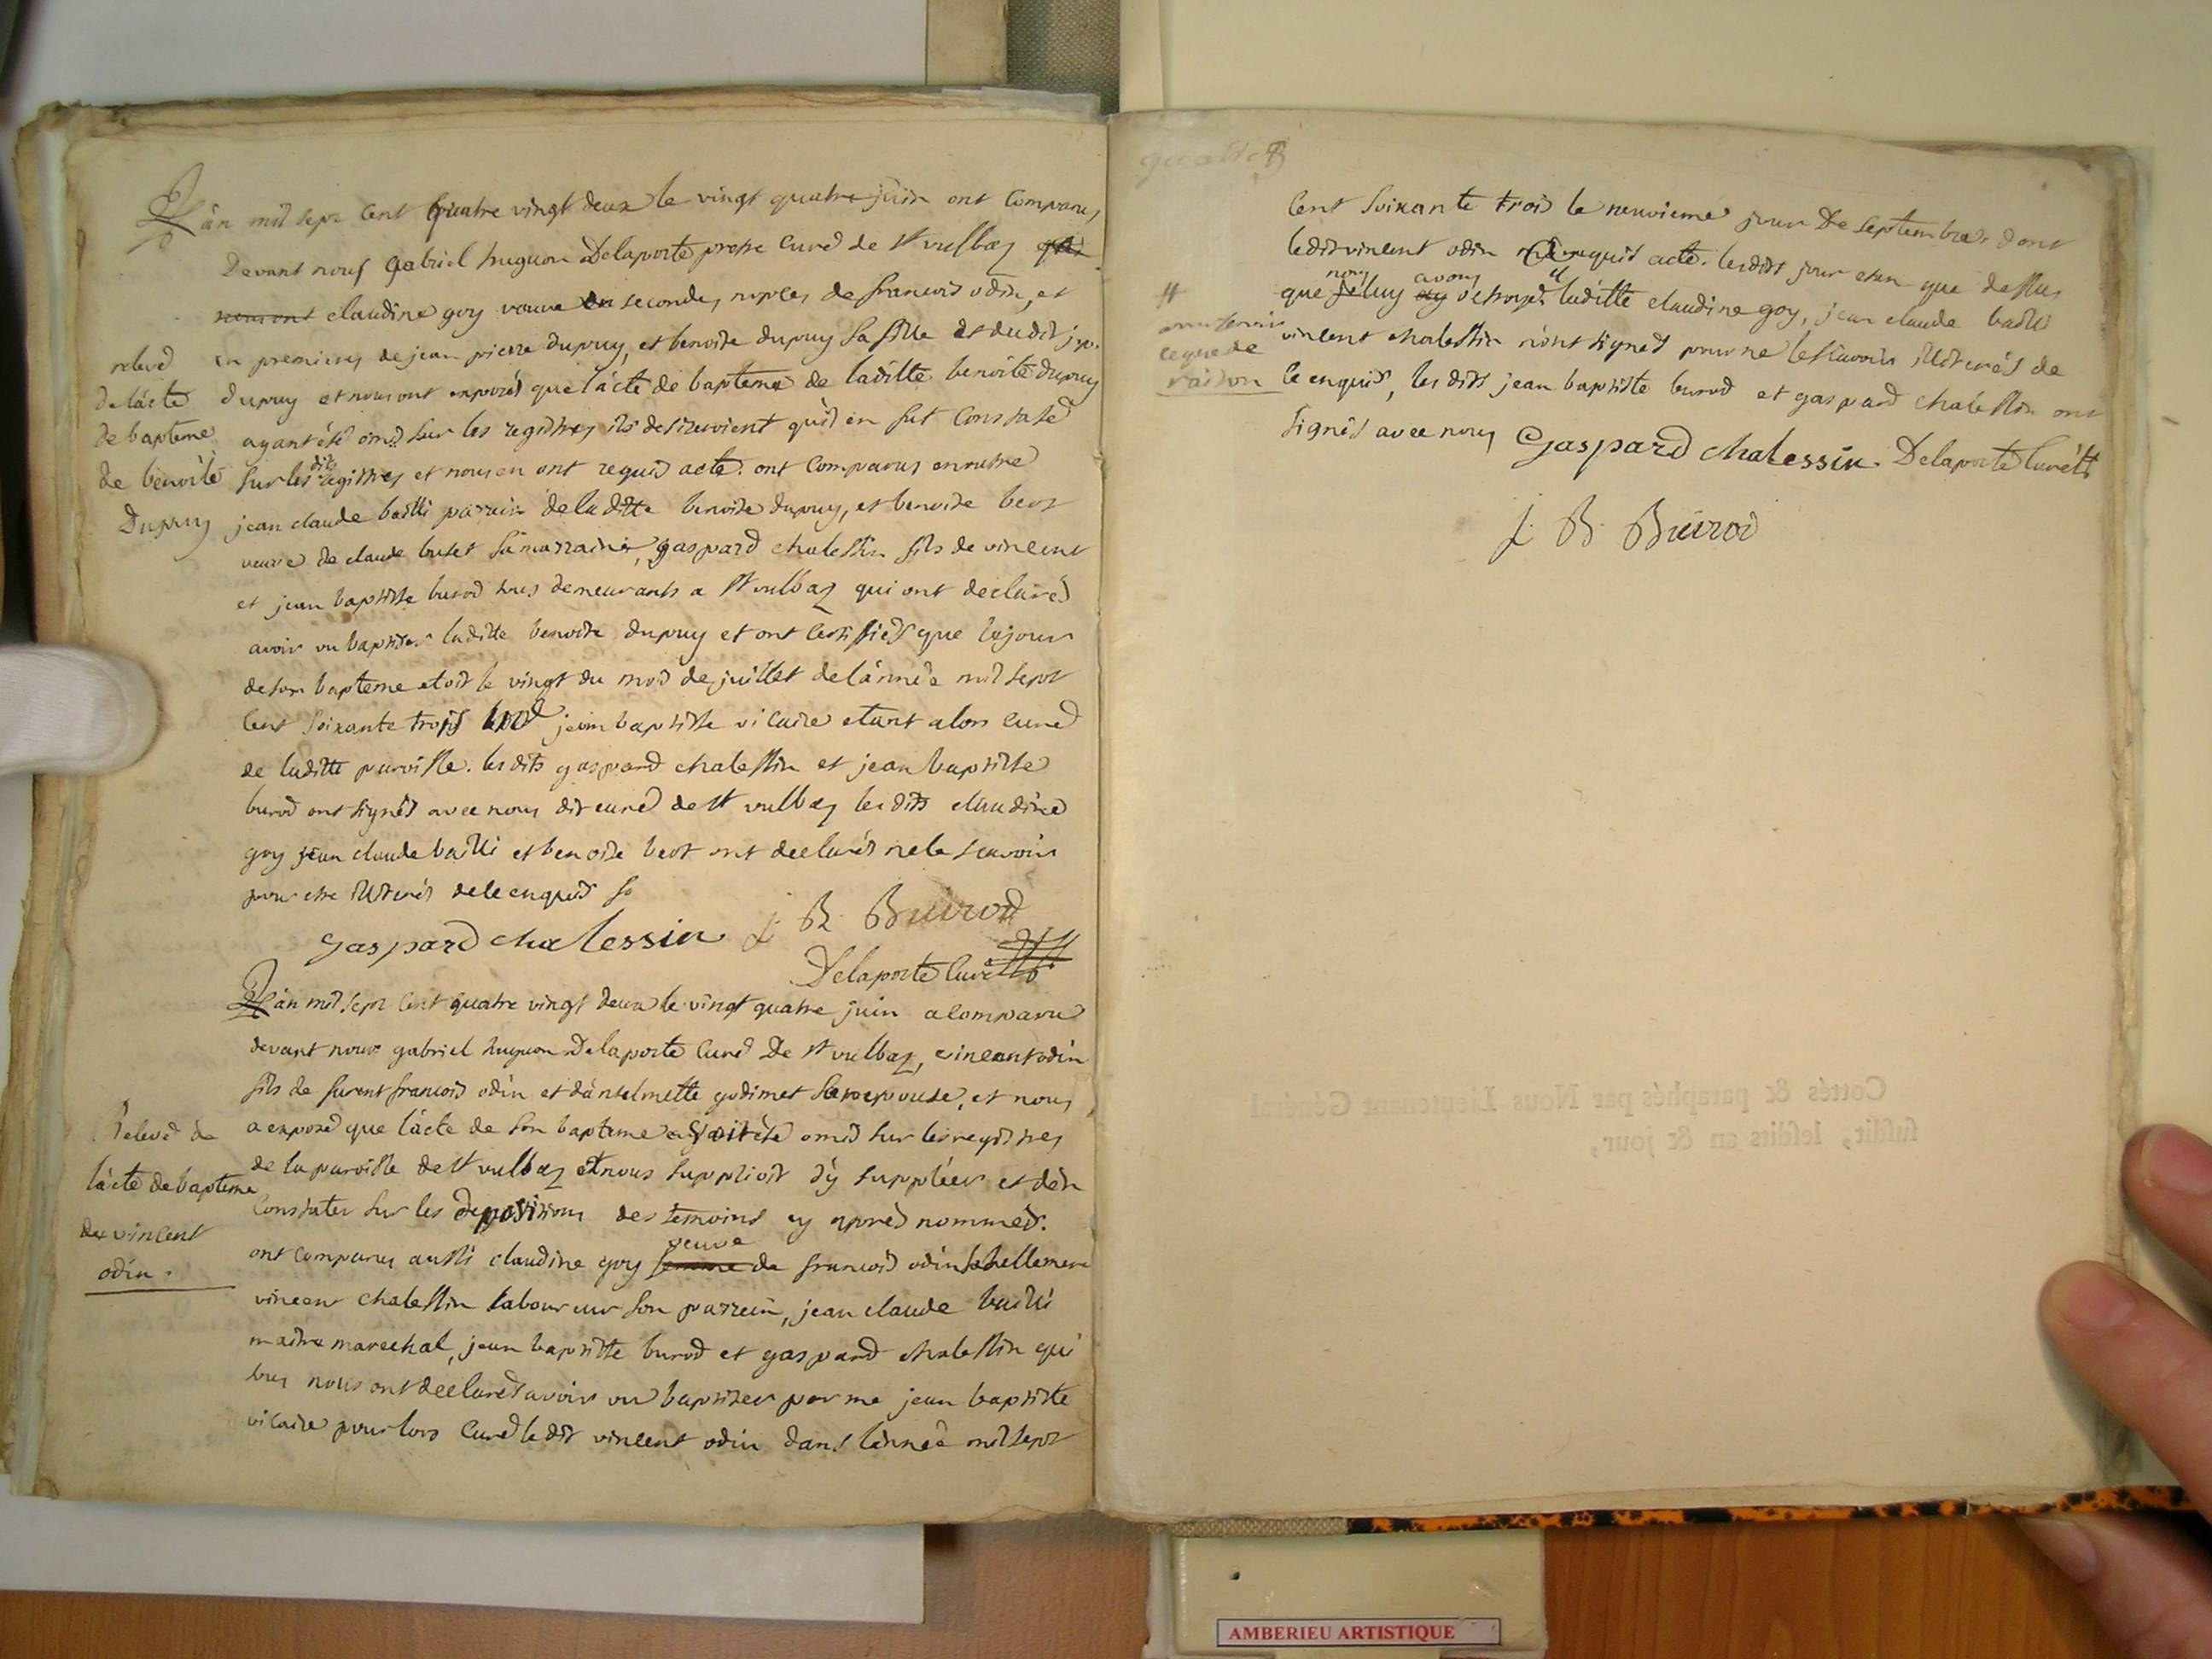 L'an mil sept cent quatre vingt deux le vingt quatre juin ont comparus
devant nous gabriel huguon Delaporte pretre curé de st vulbaz
claudine goy veuve en secondes nopces de francois odin, et
en premieres de jean pierre dupuy, et benoite dupuy sa fille et dudit j.p.
dupuy et nous ont exposés que l'acte de bapteme de laditte benoite dupuy
ayant été omis sur les registres ils desireroient qu'il en fut constaté
sur lesdits registres et nous en ont requis acte. ont comparus en outre
jean claude bailli parrain de laditte benoite dupuy, et benoite beot
veuve de claude buset sa marraine, gaspard chalessin fils de vincent
et jean baptiste burod tous demeurants a st vulbaz qui ont declarés
avoir vu baptiser laditte benoite dupuy et ont certifiés que le jour
de son bapteme etoit le vingt du mois de juillet de l'année mil sept
cent soixante trois jean baptiste vicaire etant alors curé
de laditte paroisse. les dits gaspard chalessin et jean baptiste
burod ont signés avec nous dit curé de st vulbaz les dits claudine
goy jean claude bailli et benoite beot ont declarés ne le scavoir
pour etre illiterés de ce enquis
gaspard chalessin J. B. Buirod
Delaporte curé
relevé
de l'acte
de bapteme
de benoite
Dupuy
L'an mil sept cent quatre vingt deux le vingt quatre juin a comparu
devant nous gabriel huguon Delaporte curé De st vulbaz, vincent odin
fils de furent francois odin et d'anselmette godimet son epouse, et nous
a exposé que l'acte de son bapteme avoit été omis sur les registres
de la paroisse de st vulbaz et nous supplioit d'y suppléer et d'en
constater sur les depositions des temoins cy aprés nommés.
ont comparus aussi claudine goy femme veuve de francois odin
vincent chalessin laboureur son parrein, jean claude bailli
maitre marechal, jean baptiste burod et gaspard chalessin qui
tous nous ont declarés avoir vu baptiser par me jean baptiste
vicaire pour lors curé le dit vincent odin dans l'année mil sept
Relevé de
l'acte de bapteme
de vincent
odin.
cent soixante trois le neuvieme jour De septembre, dont
ledit vincent odin requis acte. lesdits jour et an que dessus
que nous luy avons octroyé. laditte claudine goy, jean claude bailli
vincent chalessin n'ont signés pour ne le scavoir illiterés de
ce enquis, les dits jean baptiste burod et gaspard chalessin ont
signés avec nous Gaspard chalessin. Delaporte curé
J. B. Buirod
raison
Cottés & paraphés par Nous Lieutenant Général
susdit, lesdits an & jour,
AMBERIEU ARTISTIQUE